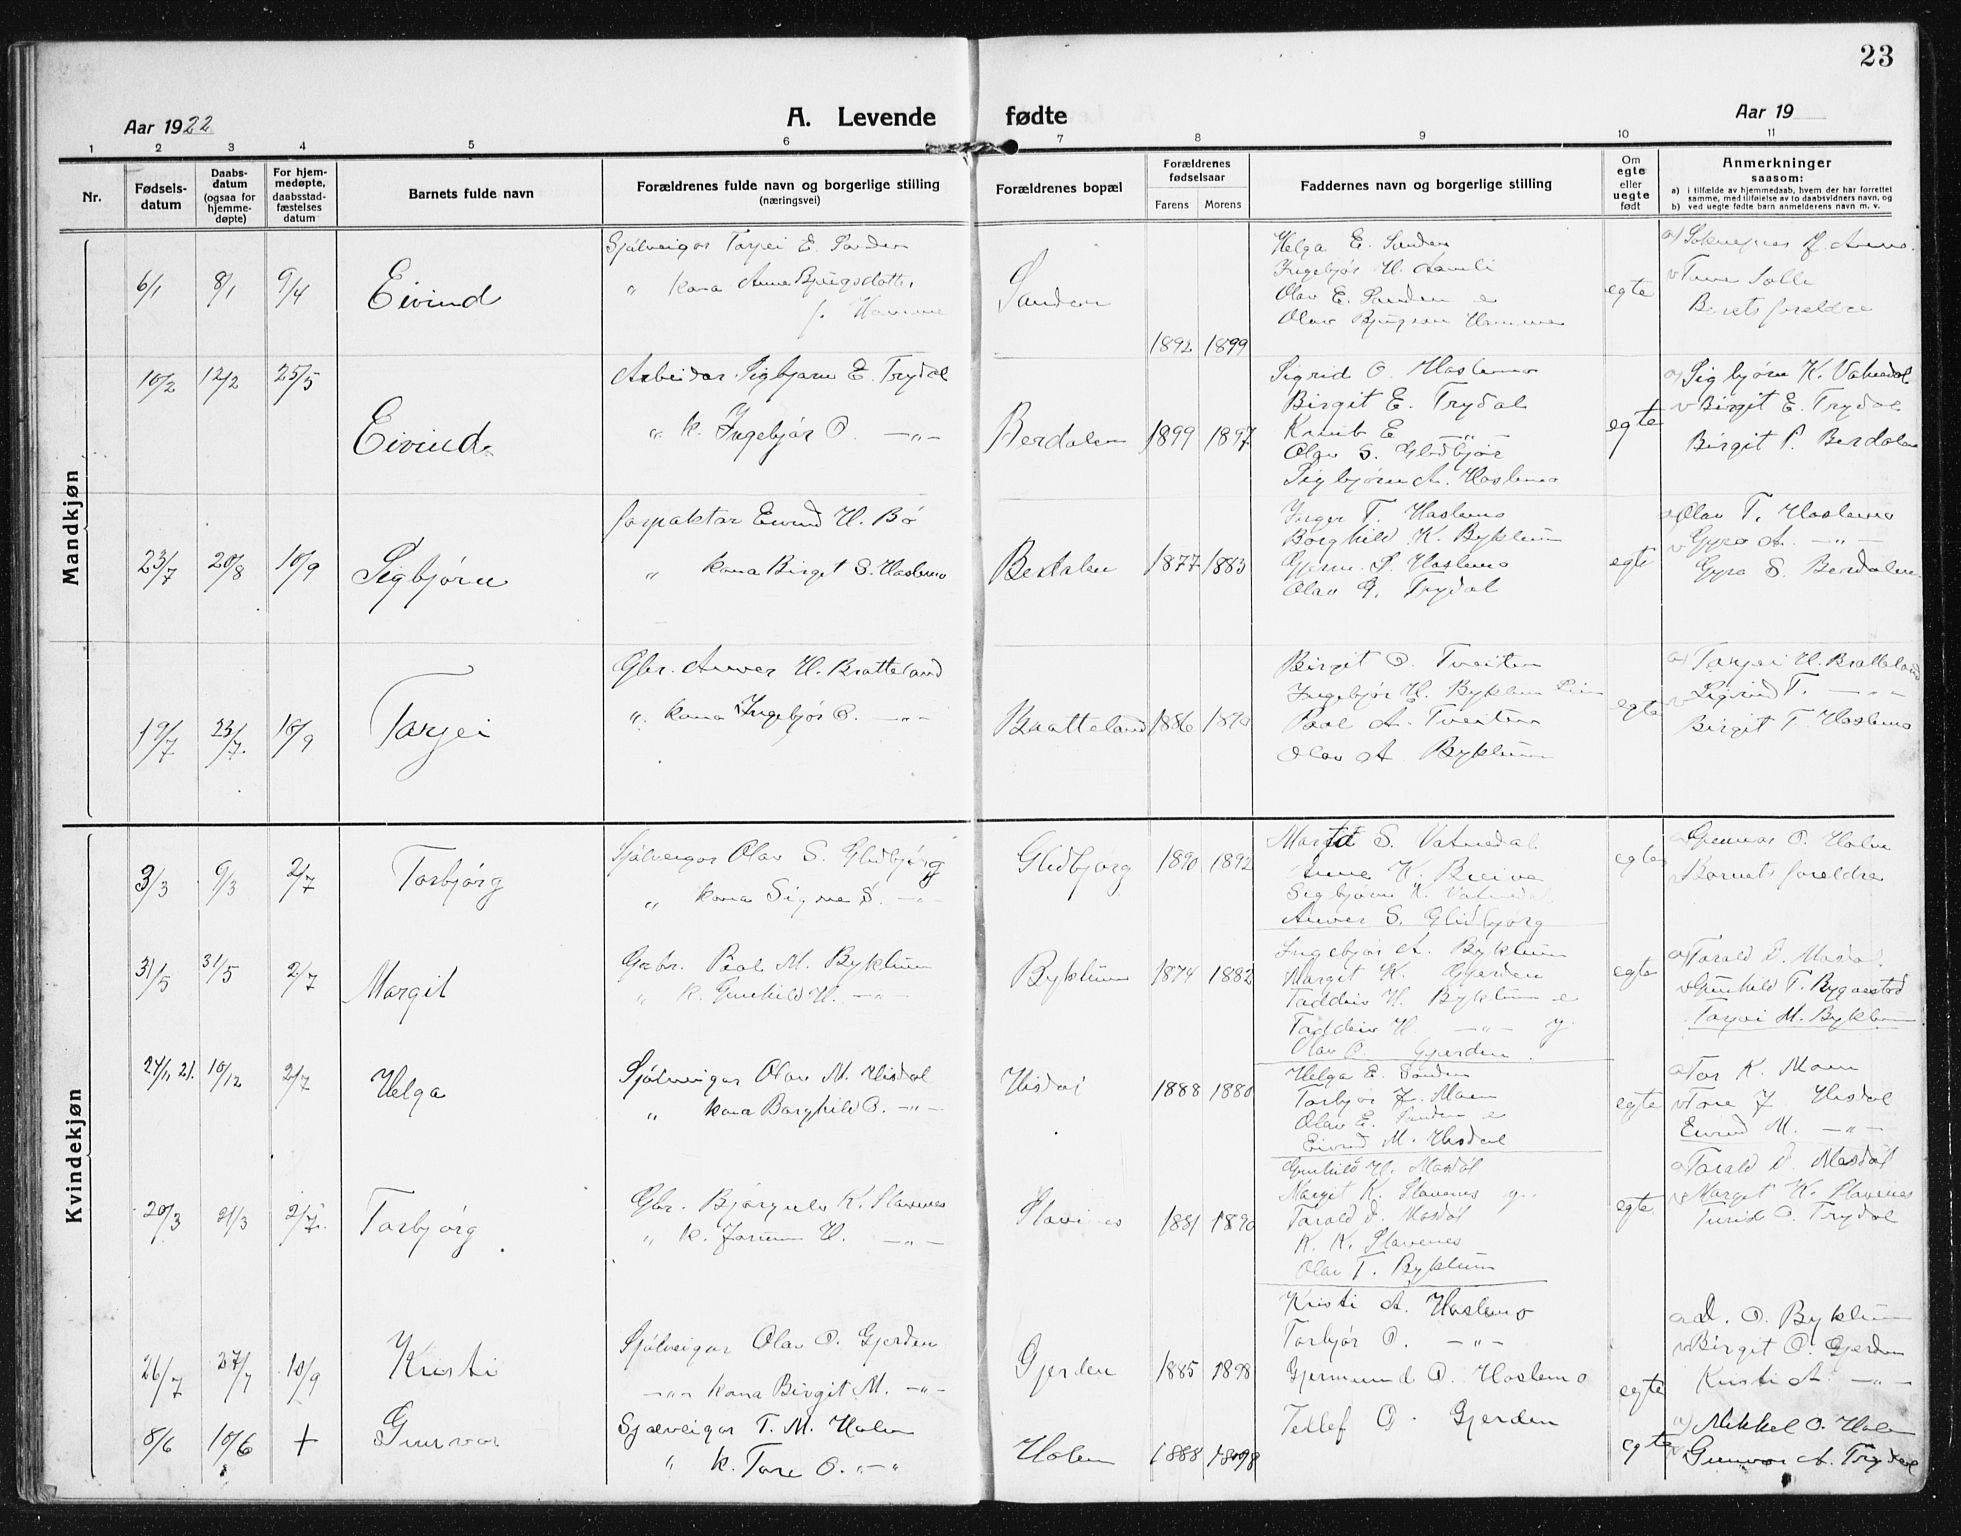 23
Aar 1922
A. Levende fødte
Aar 19
1 2 3 4 5 6 7 8 9 10 11
Nr.
Fødsels-
datum
Daabs-
datum
(ogsaa for
hjemme-
døpte)
For hjem-
medøpte,
daabsstad-
fæstelses
datum
Barnets fulde navn
Forældrenes fulde navn og borgerlige stilling
(næringsvei)
Forældrenes bopæl
Forældrenes
fødselsaar
Farens Morens
Faddernes navn og borgerlige stilling
Om
egte
eller
uegte
født
Anmerkninger
saasom:
a) i tilfælde av hjemmedaab, hvem der har forrettet
samme, med tilføielse av to daabsvidners navn, og
b) ved uegte fødte barn anmelderens navn m. v.
Mandkjøn
6/1 8/1 9/4 Eivind
Sjølveigar Torjei E. Sanden
" kona Anne Bjugsdotter
f.
Sanden
1892 1899
Helga E. Sanden
Ingebjør H. Aamli
Olav E. Sanden e
Olav Bjugson Hamme
egte
a)
Barnets foreldre
10/2 12/2 25/5 Eivind
Arbeidar Sigbjørn E. Trydal
" k. Ingebjør O. -"-
Berdalen
1899 1897
Sigrid O. Haslemo
Birgit E. Trydal
Knut E. -"-
Olav S. Glidbjør
Sigbjørn A. Haslemo
egte
a) Sigbjørn K. Vatnedal
v Birgit E. Trydal
Birgit P. Berdalen
23/7 20/8 10/9 Sigbjørn
forpaktar Eivind H. Bø
" kona Birgit S. Haslemo
Besdalen
1877 1883
Inger T. Haslemo
Borghild K. Byklum
S. Haslemo
Olav G. Trydal
egte
a) Olav T. Haslemo
v Gyro A. -"-
Gyro S. Berdalen
19/7 23/7 10/9 Torjei
Gbr. Anver H. Bratteland
" kona Ingebjør O. -"-
Bratteland
1886 1890
Birgit O. Tveiten
Ingebjør H. Byklum
Paal A. Tveiten
Olav A. Byklum
egte
a) Torjei H. Bratteland
v Sigrid T. -"-
Birgit T. Haslemo
Kvindekjøn
3/3 9/3 2/7 Torbjørg
Sjølveigar Olav S. Glidbjørg
" kona Signe S. -"-
Glidbjørg
1890 1892
Margit S. Vatnedal
Anne K. Breive
Sigbjørn K. Vatnedal
Anver S. Glidbjørg
egte
a Gunnar O. Holen
v Barnets foreldre
31/5 31/5 2/7 Margit
Gbr. Paal M. Byklum
" k. Gunhild H. -"-
Byklum
1874 1882
Ingebjør A. Byklum
Margit K. Gjerden
Taddeiv H. Byklum e
Taddeiv H. -"- y.
Olav O. Gjerden
egte
a Tarald D. Mosdøl
v Gunhild T. Rygnestad
Torjei M. Byklum
24/11 21. 10/12 2/7 Helga
Sjølveigar Olav M. Hisdal
" kona Borghild O. -"-
Hisdal
1888 1880
Helga E. Sanden
Torbjør J. Moen
Olav E. Sanden e
Eivind M. Hisdal
egte
a Tor K. Moen
v Tore J. Hisdal
Eivind M. -"-
20/3 21/3 2/7 Torbjørg
Gbr. Bjørgulv K. Stavenes
" k. Jorunn H. -"-
Stavenes
1881 1890
Gunhild H. Mosdøl
Margit K. Stavenes g.
Tarald D. Mosdøl
K. K. Stavenes
Olav T. Byklum
egte
a Tarald D. Mosdøl
v Margit K. Stavenes
Turid O. Trydal
26/7 27/7 10/9 Kristi
Sjølveigar Olav O. Gjerden
-"- kona Birgit M. -"-
Gjerden
1885 1898
Kristi A. Haslemo
Torbjør O. -"-
Gjermund O. Haslemo
Tellef O. Gjerden
egte
a D. O. Byklum
v Birgit O. Gjerden
Kristi A. -"-
8/6 10/6 + Gunvor
Sjølveigar T. M. Holen
" k. Tore O. -"-
Holen
1888 1898
egte
a) Mikkel O. Holen
v Gunvor A. Trydal